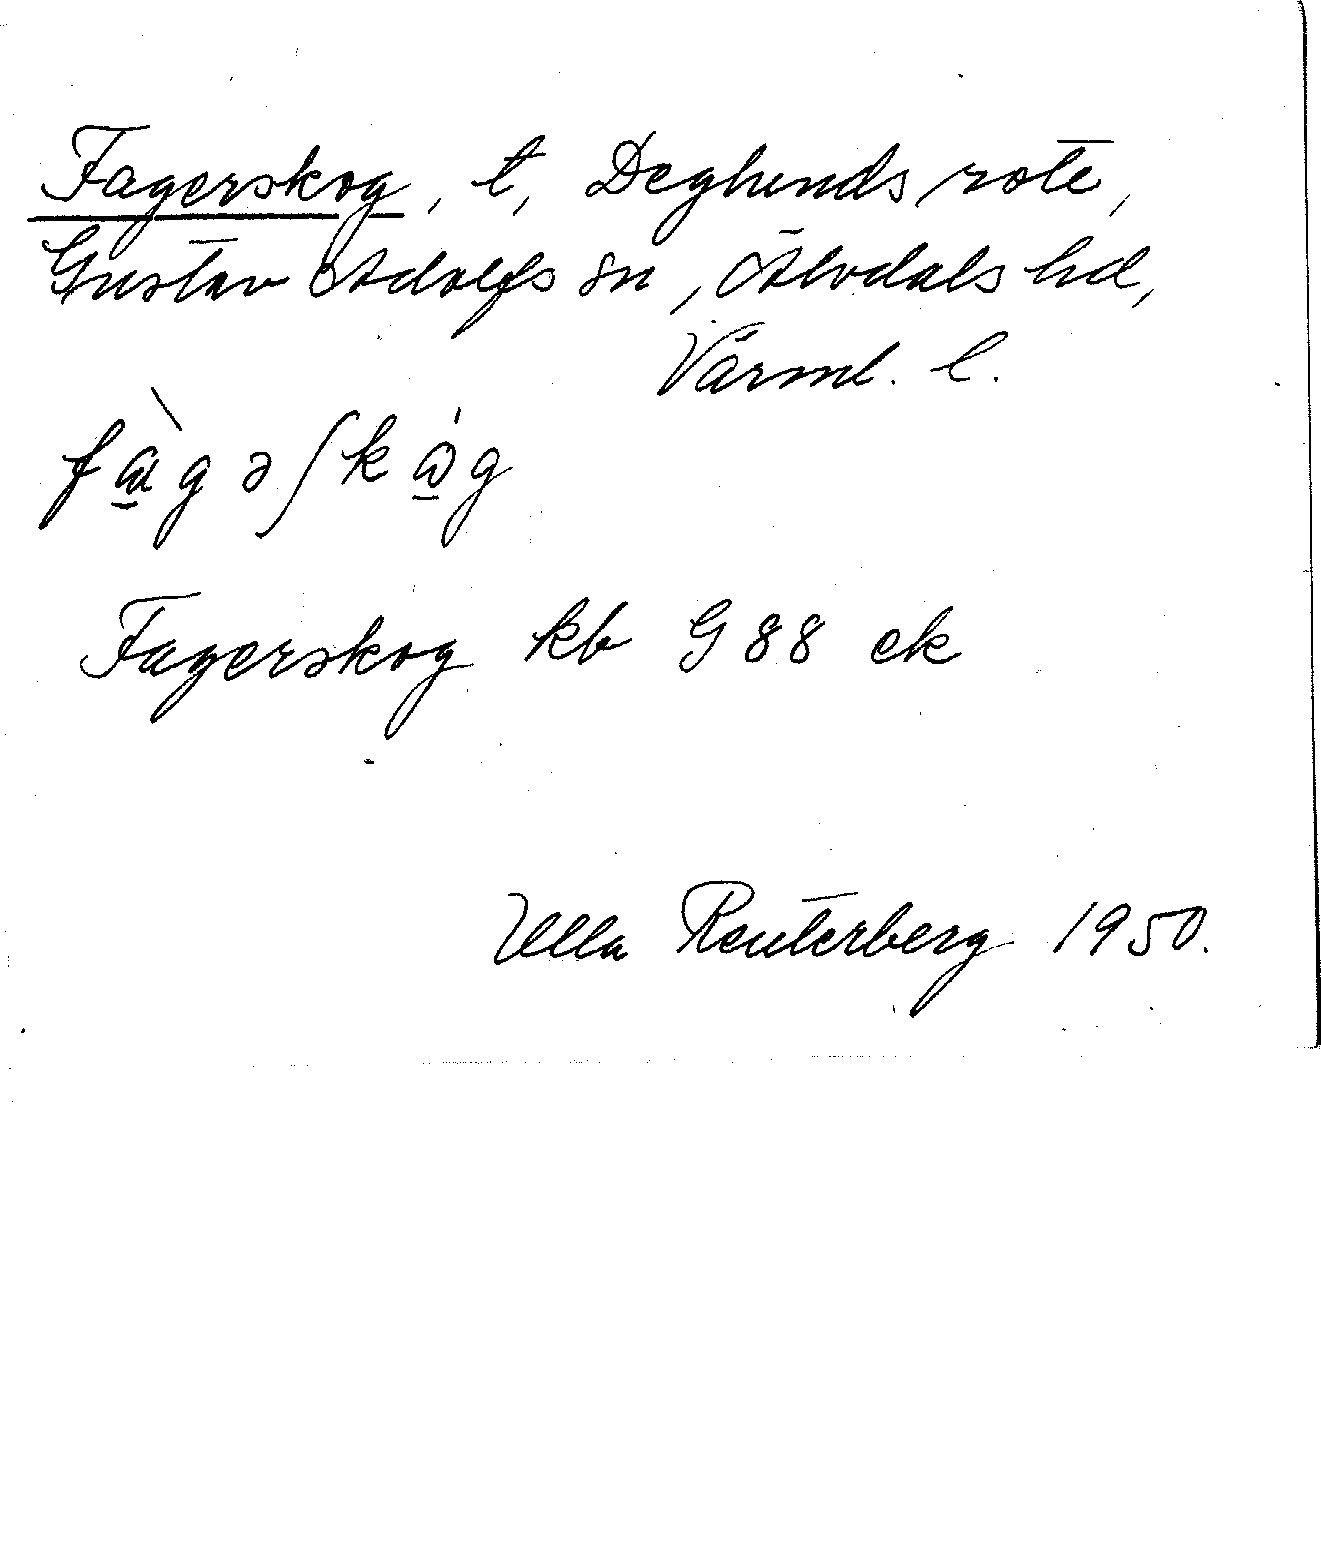 Fagerskog, t, Deglunds rote,
Gustav Adolfs sn, Älvdals hd,
Värml. l.
fɑ̀gəʃkɷ́g
Fagerskog kb G 88 ek
Ulla Reuterberg 1950.